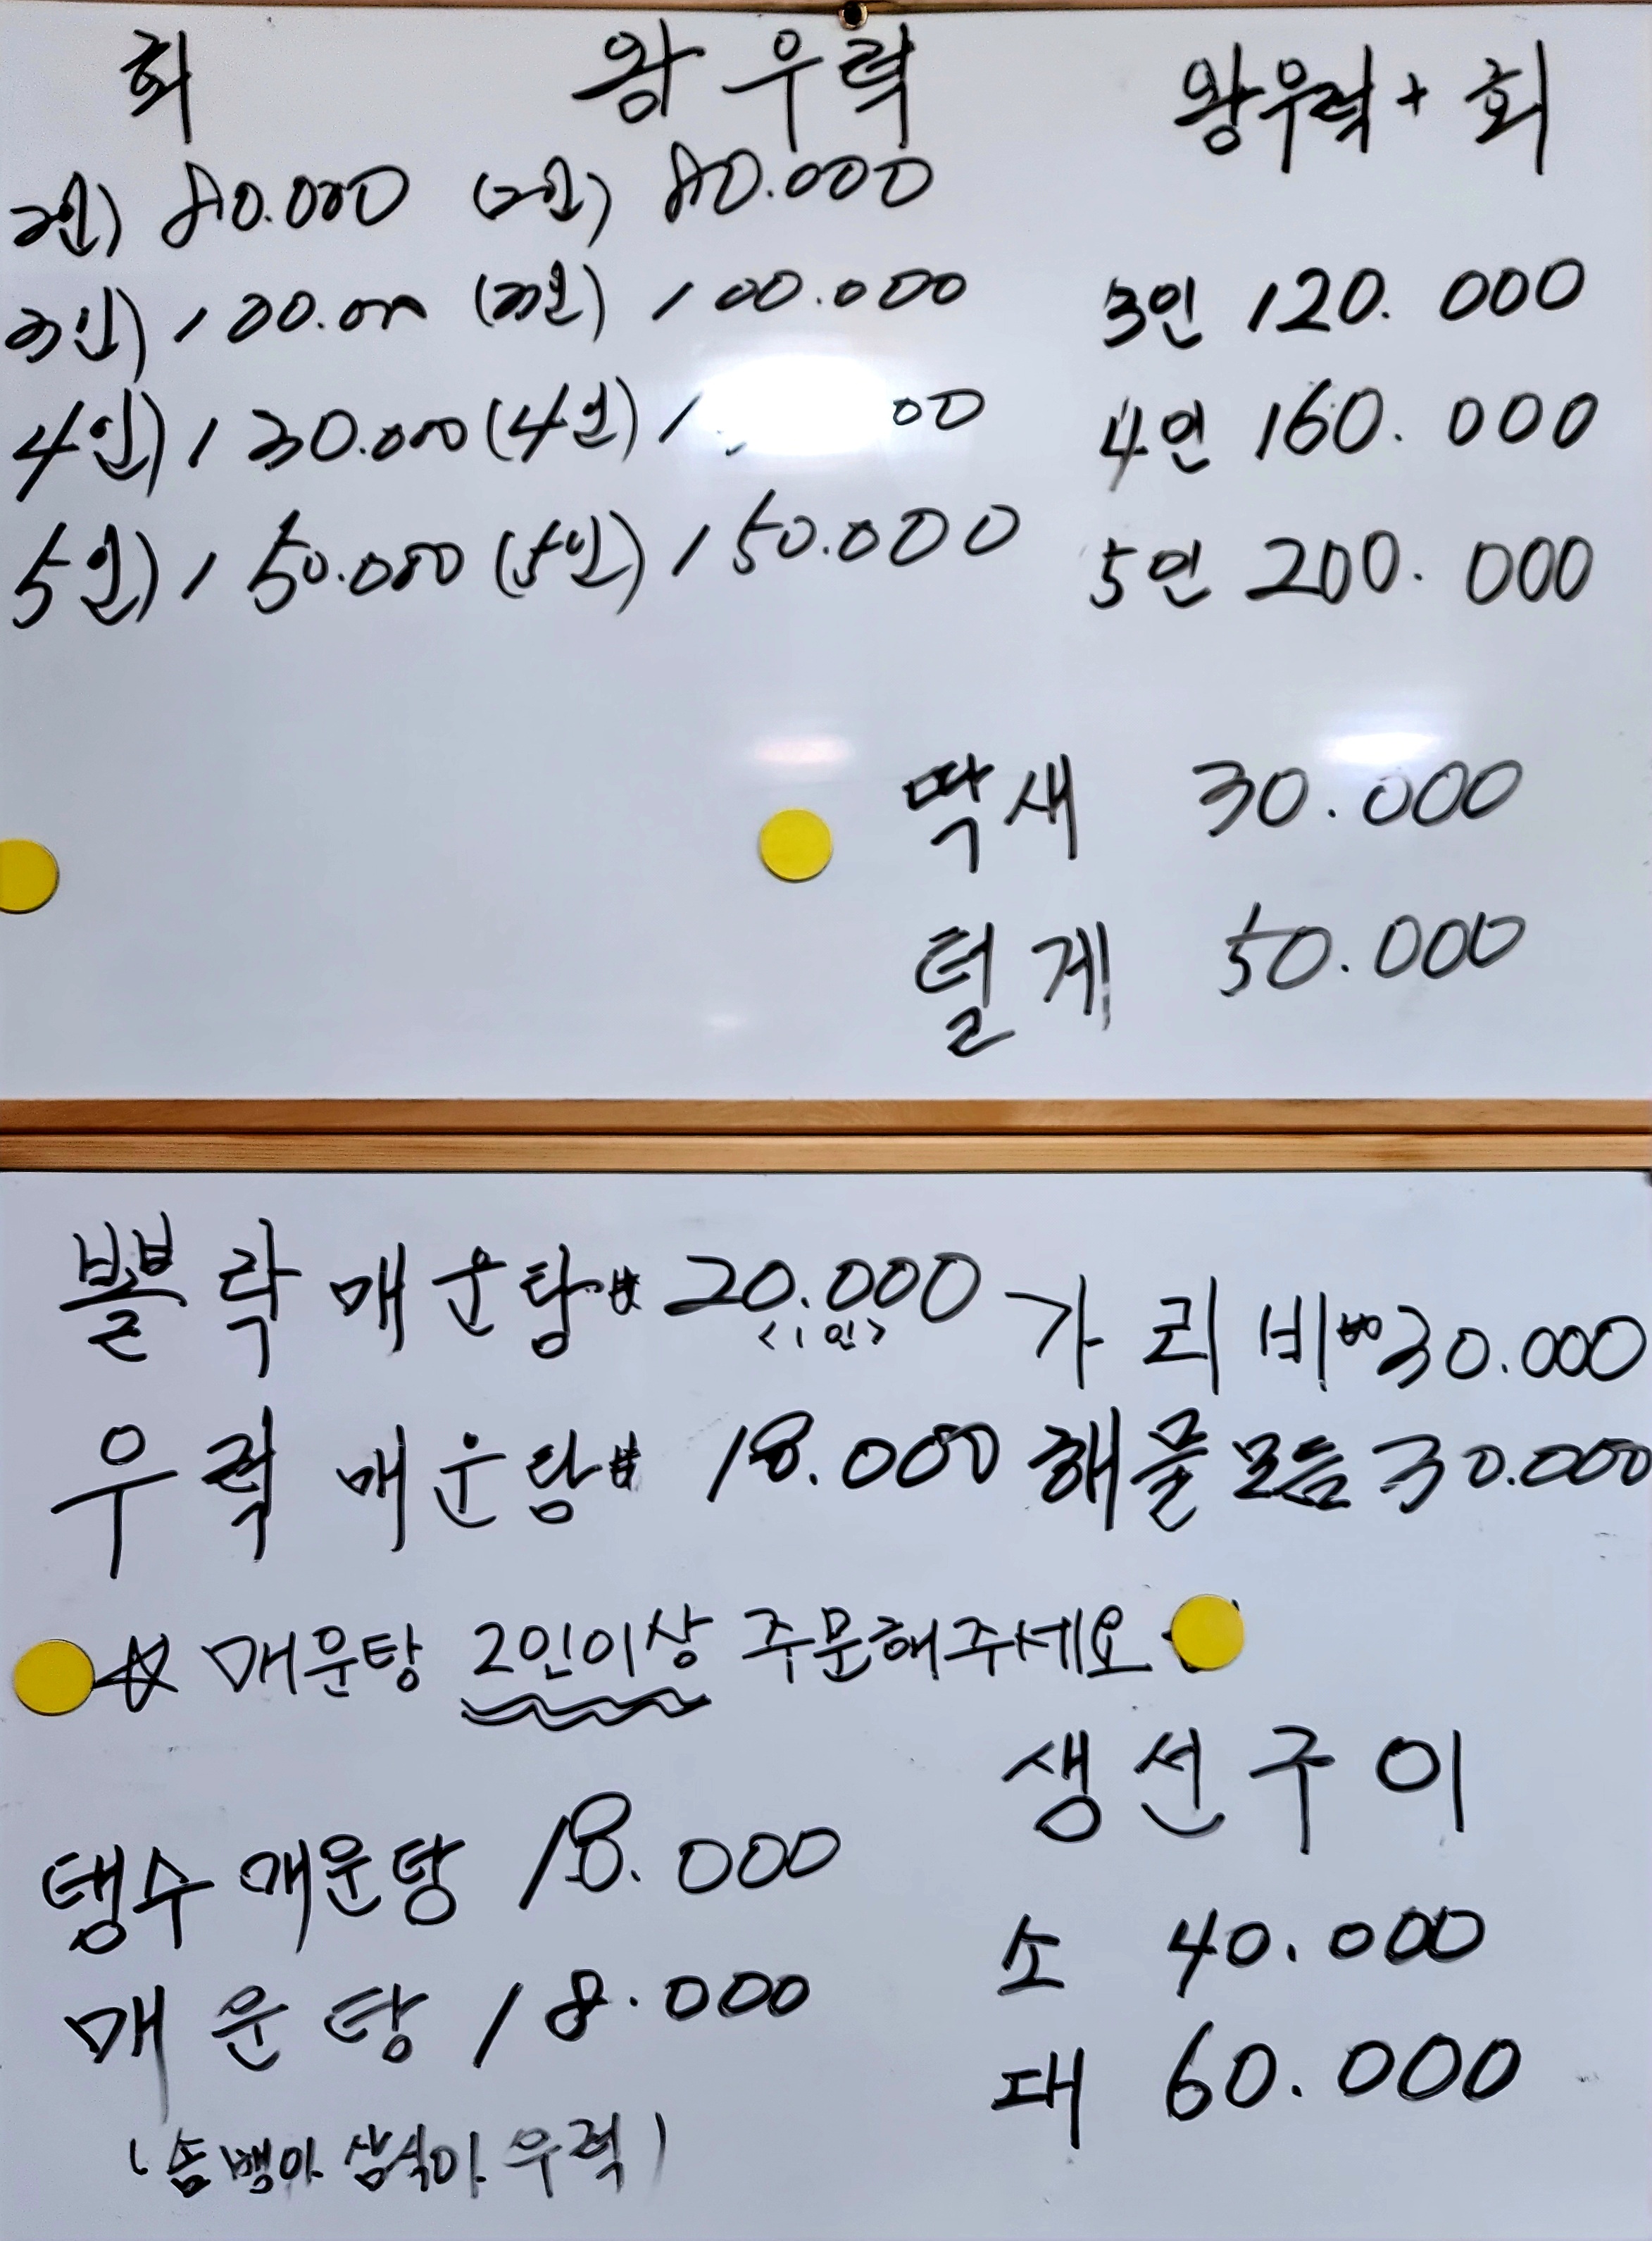 회 왕우럭 왕우럭+회
2인) 80.000 (2인) 80.000
3인) 100.000 (3인) 100.000 3인 120.000
4인) 130.000 (4인) 4인 160.000
5인) 150.000 (5인) 150.000 5인 200.000
딱새 30.000
털게 50.000
뽈락매운탕 20.000 가리비 30.000
<1인>
우럭매운탕 18.000 해물모듬 30.000
☆ 매운탕 2인이상 주문해주세요
생선구이
탱수매운탕 18.000
소 40.000
매운탕 18.000
대 60.000
(솜뱅아 삼식아 우럭)